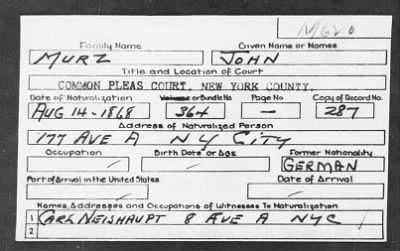 M620
Family Name Given Name or Names
MURZ JOHN
Title and Location of Court
COMMON PLEAS COURT, NEW YORK COUNTY.
Date of Naturalization Volume or Bundle No Page No Copy of Record No.
AUG 14-1868 364 — 287
Address of Naturalized Person
177 AVE A NY CITY
Occupation Birth Date or Age Former Nationality
GERMAN
Port of Arrival in the United States Date of Arrival
Names, Addresses and Occupations of Witnesses To Naturalization
1 CARL NEISHAUPT 8 AVE A NYC
2